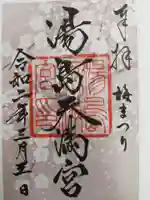 奉拝
梅まつり
湯島天満宮
令和二年三月五日